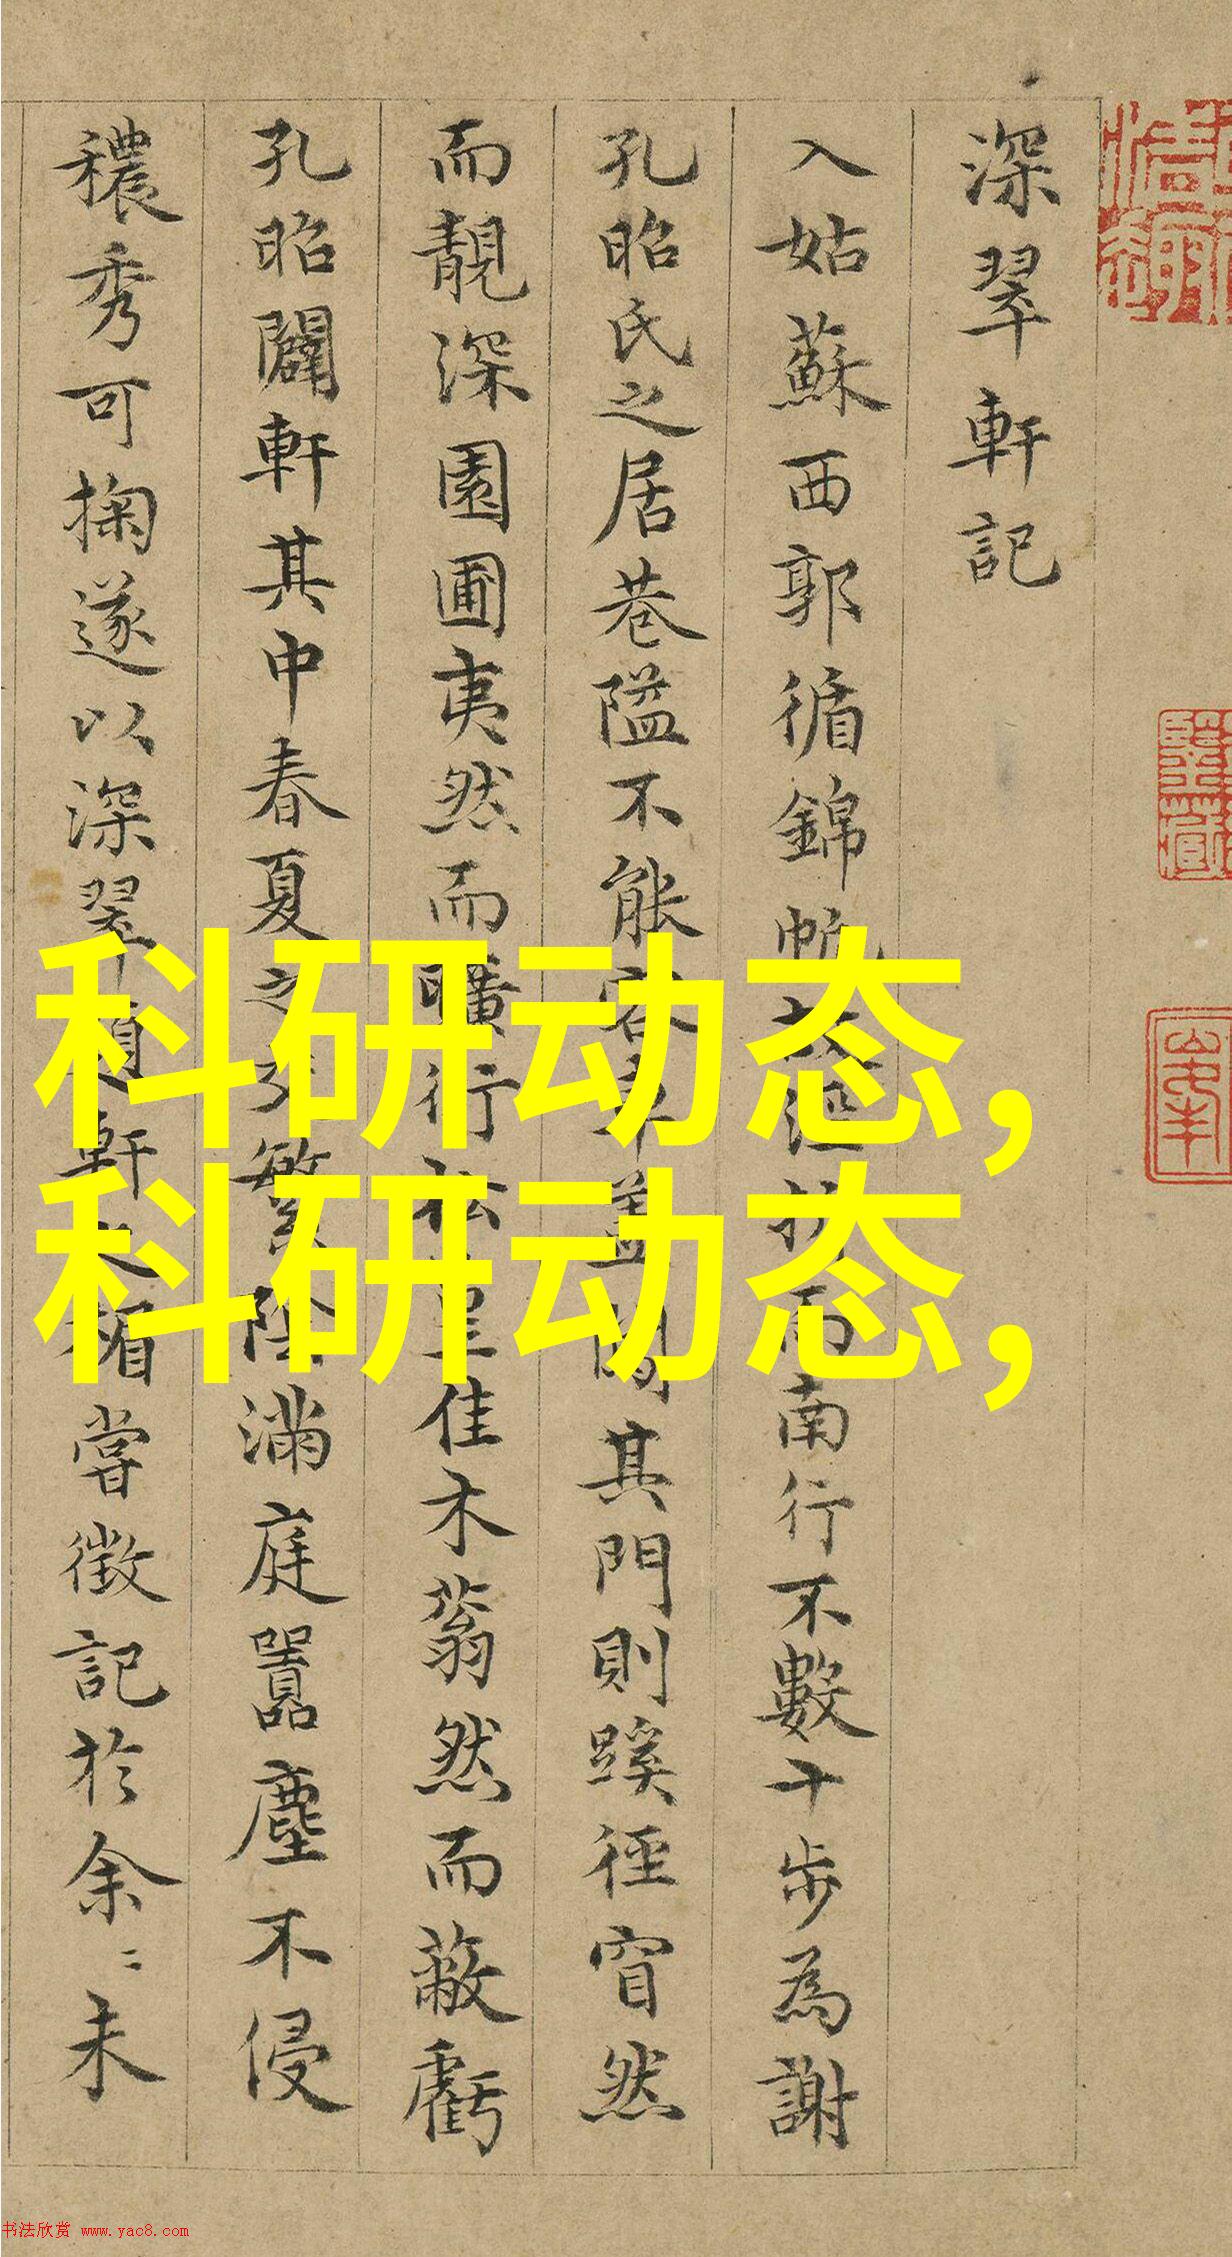 深翠軒記
入姑蘇西郭循錦帆故而南行不數十步為謝
孔昭氏之居巷隘不能容車盖闔其門則蹊徑窅然
而靚深園圃夷然而曠行松呈佳木蓊然而蔽虧
孔昭闢軒其中春夏之交繁陰滿庭嚻塵不侵
穠秀可掬遂以深翠軒之楣嘗徵記於余〻未
科研动态,
科研动态,
书法欣赏 www.yac8.com